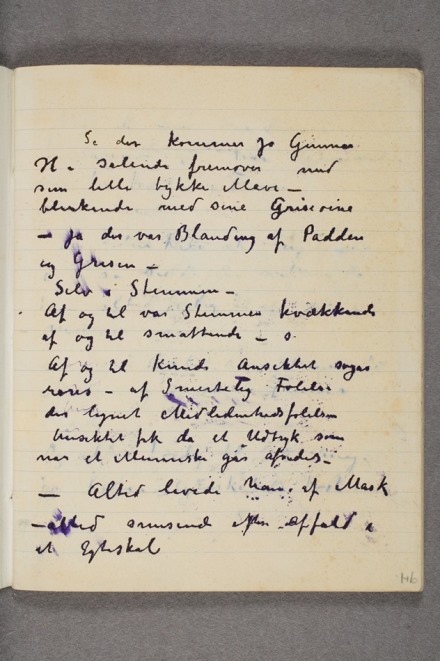 Se der kommer jo Gunnar
H – seilende fremover med
sin lille tykke Mave –
blinkende med sine Griseøine
– Ja der var Blanding af Padden
og Grisen –
Selv i Stemmen –
Af og til var Stemmen kvækkende
af og til smattende –
Af og til kunde Ansiktet siges
røres – af Smertelig Følelse
der lignet Medlidenhedsfølelsen
Ansiktet fik da et Udtryk som
når et Menneske går afsides –
– Altid levede han af Mask
– altid snusende efter Affald i
et Ægteskab
146